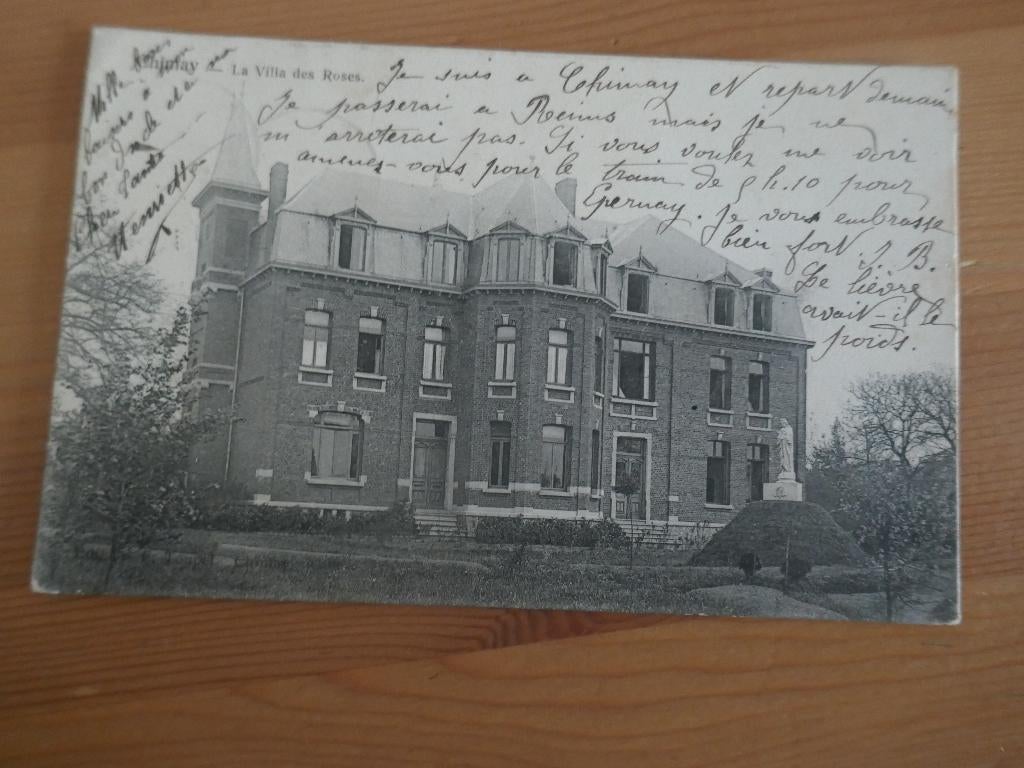 Chimay — La Villa des Roses.
Je suis a Chimay et repart demain
Je passerai a Reims mais je ne
m arreterai pas. Si vous voulez me voir
amenez-vous pour le train de 5 h.10 pour
Epernay. je vous embrasse
bien fort. J. B.
Le lièvre
avait-il le
poids.
Mille bons
baisers à
bon
Henriette